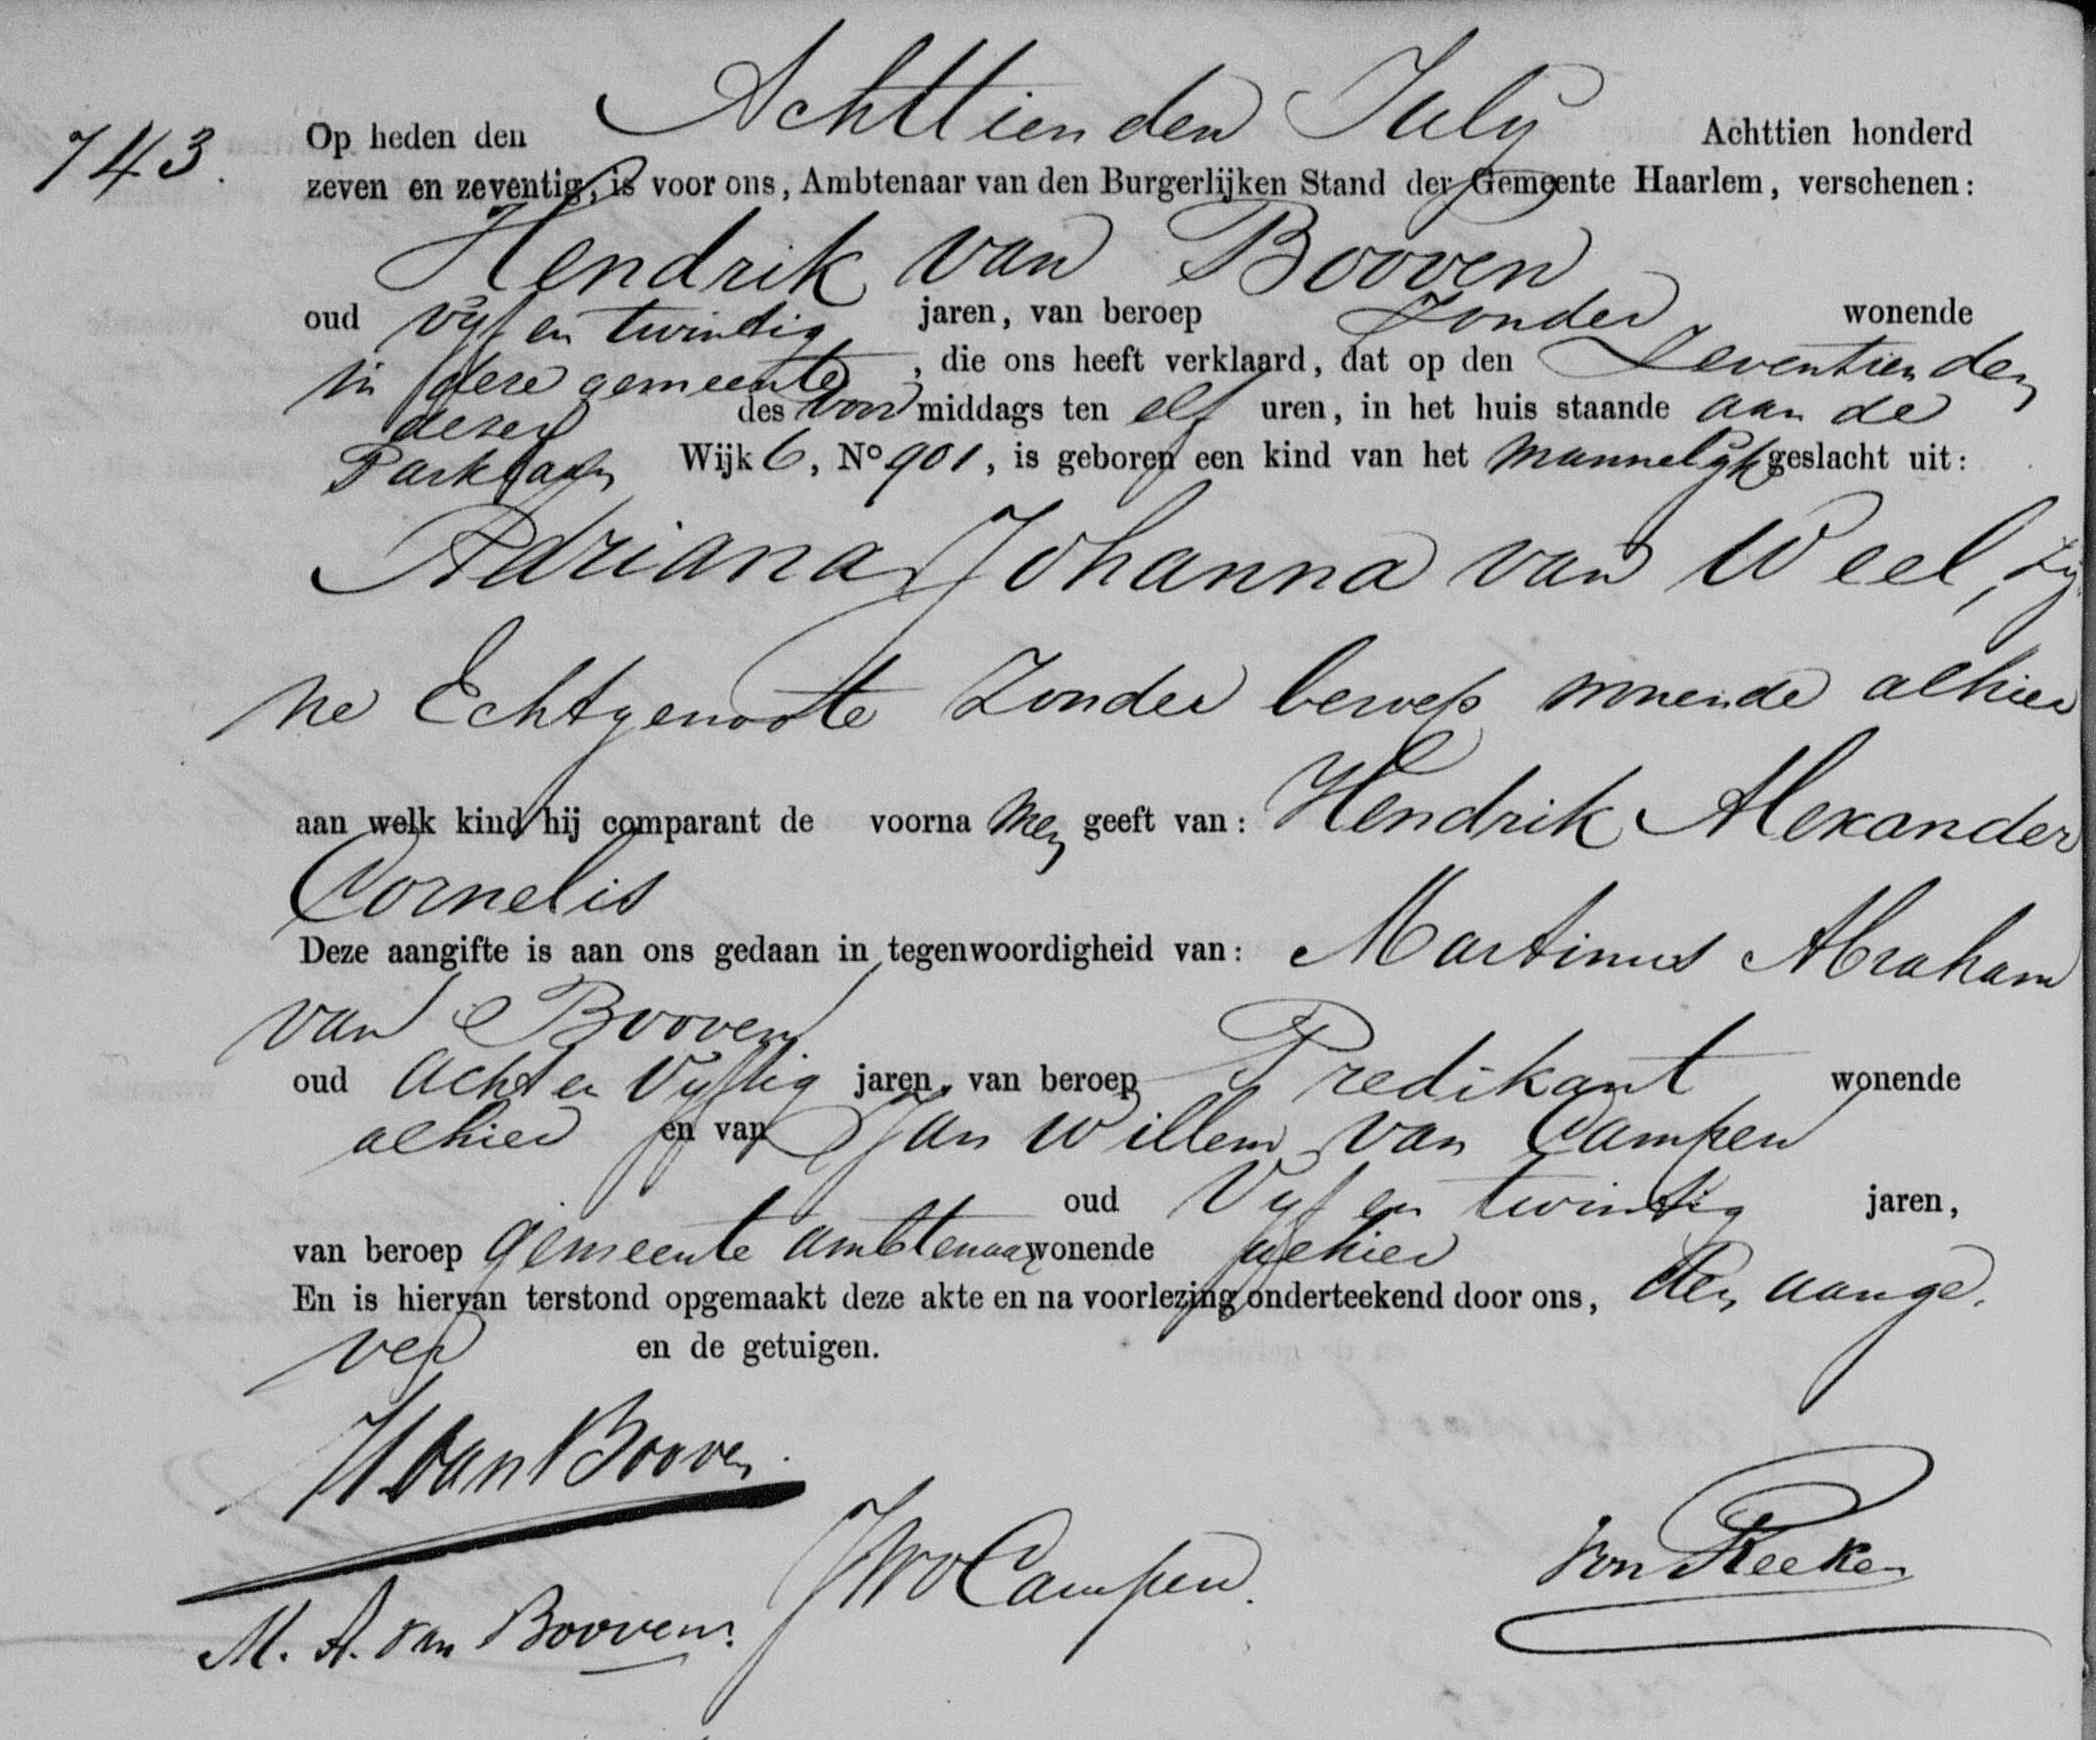 743.
Op heden den Achttienden July Achttien honderd
zeven en zeventig, is voor ons, Ambtenaar van den Burgerlijken Stand der Gemeente Haarlem, verschenen:
Hendrik van Booven
oud vyf en twintig jaren, van beroep Zonder wonende
in deze gemeente, die ons heeft verklaard, dat op den Zeventienden
dezer des voor middags ten elf uren, in het huis staande aan de
Parklaan Wijk 6, No 901, is geboren een kind van het mannelijk geslacht uit:
Adriana Johanna van Weel, zy
ne Echtgenoote Zonder beroep wonende alhier
aan welk kind hij comparant de voorna men geeft van: Hendrik Alexander
Cornelis
Deze aangifte is aan ons gedaan in tegenwoordigheid van: Martinus Abraham
van Booven
oud acht en Vyftig jaren, van beroep Predikant wonende
alhier en van Jan Willem van Campen
oud Vyf en twintig jaren,
van beroep gemeente ambtenaar wonende alhier
En is hiervan terstond opgemaakt deze akte en na voorlezing onderteekend door ons, den aange-
ver en de getuigen.
H van Booven.
JWvCampen.
M. A. van Booven.